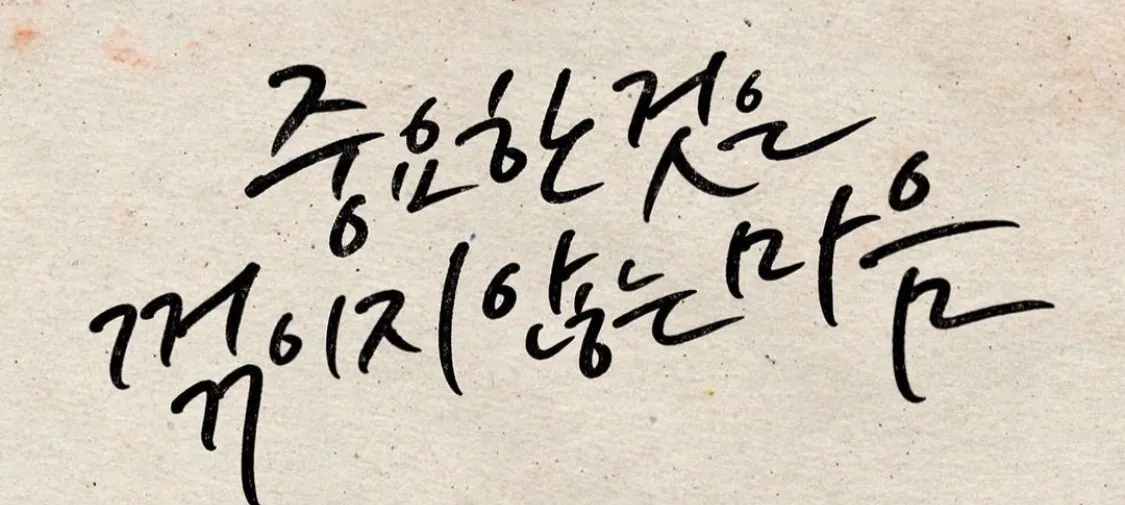 중요한 것은
꺾이지 않는 마음